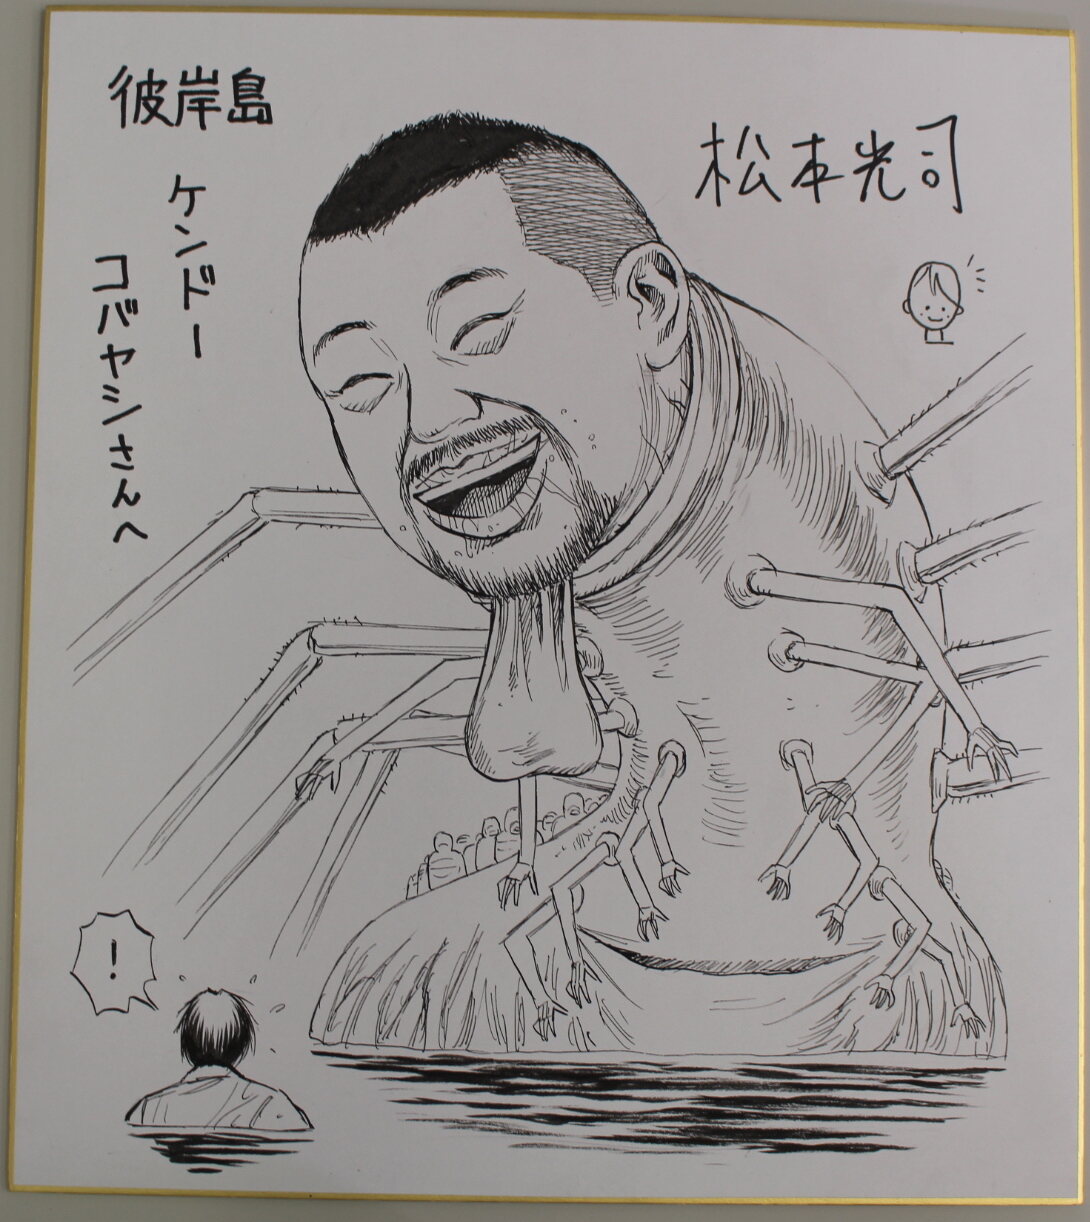 彼岸島
ケンドー
コバヤシさんへ
松本光司
!